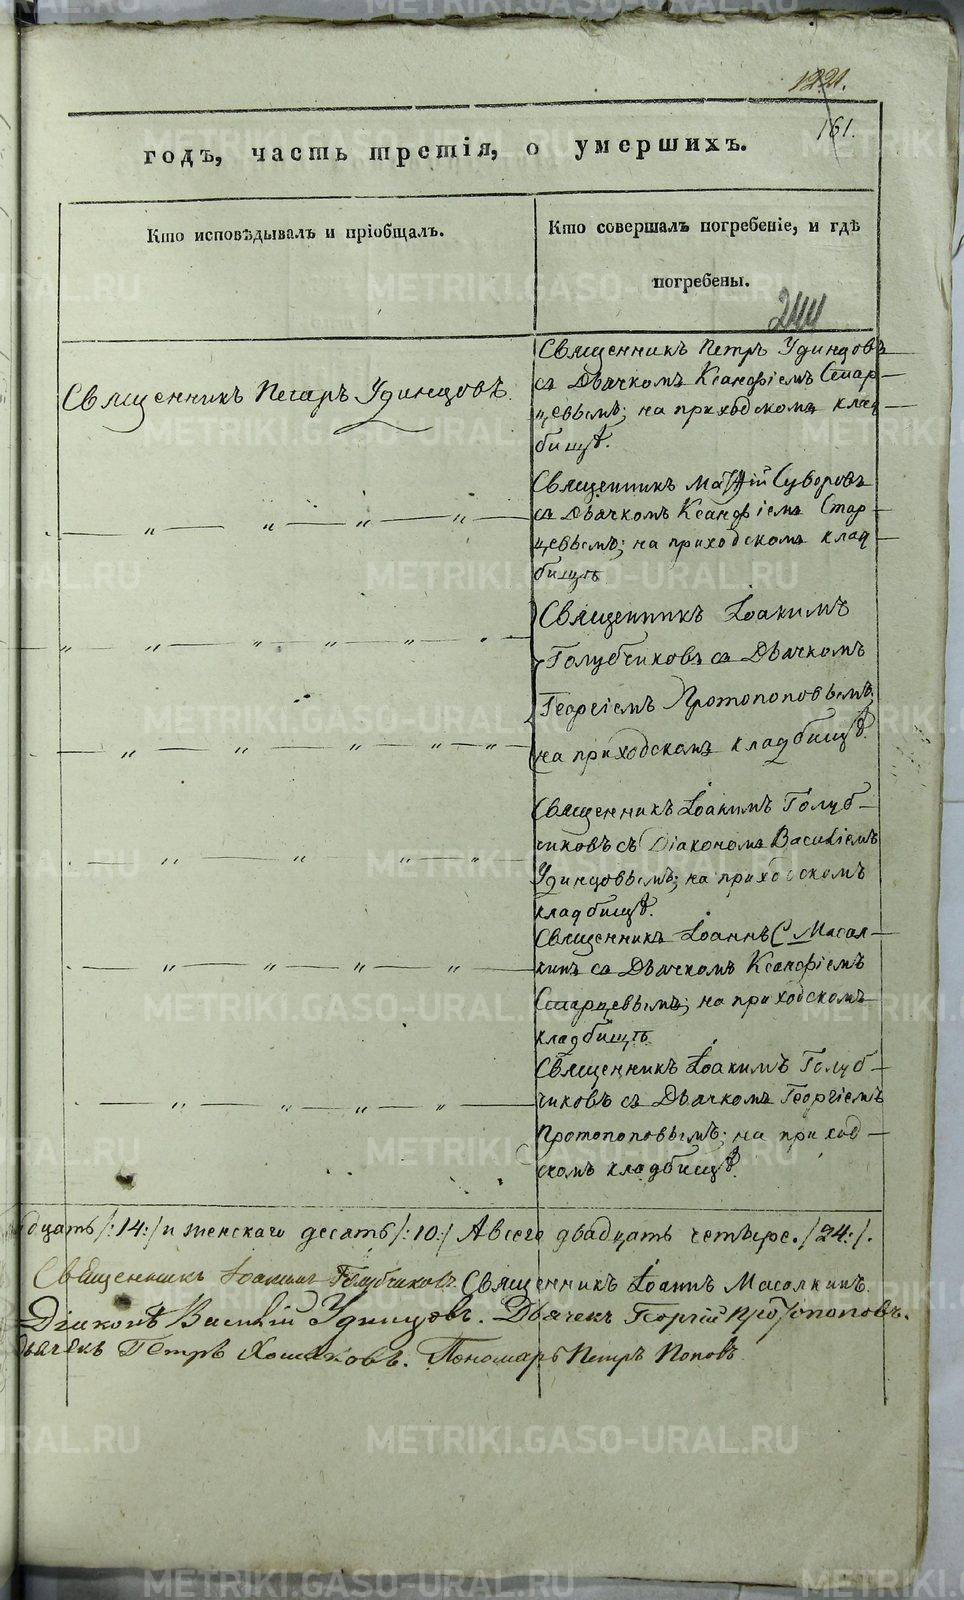 1221.
161.
годъ, часть третія, о умершихъ.
Кто исповѣдывалъ и пріобщалъ.
Кто совершалъ погребеніе, и гдѣ
погребены.
244
Священникъ Петръ Удинцовъ.
Священникъ Петръ Удинцовъ
съ Дьячкомъ Ксанфіемъ Стар-
цевымъ; на приходскомъ клад-
бищѣ.
Священникъ Матѳій Суворовъ
съ Дьячкомъ Ксанфіемъ Стар-
цевымъ; на приходскомъ клад-
бищѣ
Священникъ Іоакимъ
Голубчиковъ съ Дьячкомъ
Георгіемъ Протопоповымъ;
на приходскомъ кладбищѣ.
Священникъ Іоакимъ Голуб-
чиковъ съ Діакономъ Василіемъ
Удинцовымъ; на приходскомъ
кладбищѣ.
Священникъ Іоаннъ Масал-
кинъ съ Дьячкомъ Ксанфіемъ
Старцевымъ; на приходскомъ
кладбищѣ.
Священникъ Іоакимъ Голуб-
чиковъ съ Дьячкомъ Георгіемъ
Протопоповымъ; на приход-
скомъ кладбищѣ.
дцать /:14:/ и женскаго десять /:10:/ А всего двадцать четыре. /24:/.
Священникъ Іоакимъ Голубчиковъ Священникъ Іоаннъ Масалкинъ.
Діаконъ Василій Удинцовъ. Дьячекъ Георгій Протопоповъ.
Дьячекъ Петръ Пономарь Петръ Поповъ
METRIKI.GASO-URAL.RU